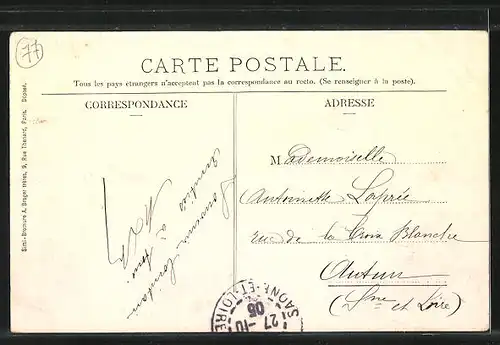 77
CARTE POSTALE.
Tous les pays étrangers n'acceptent pas la correspondance au recto. (Se renseigner à la poste).
CORRESPONDANCE
ADRESSE
Simi-Bromure A. Breger frères, 9, Rue Thénard, Paris. Déposé.
Souvenir
à toi
Mademoiselle
Antoinette Lapré
rue de la Croix Blanche
Autun
(Sne et Loire)
SAONE-ET-LOIRE
27 -10
05